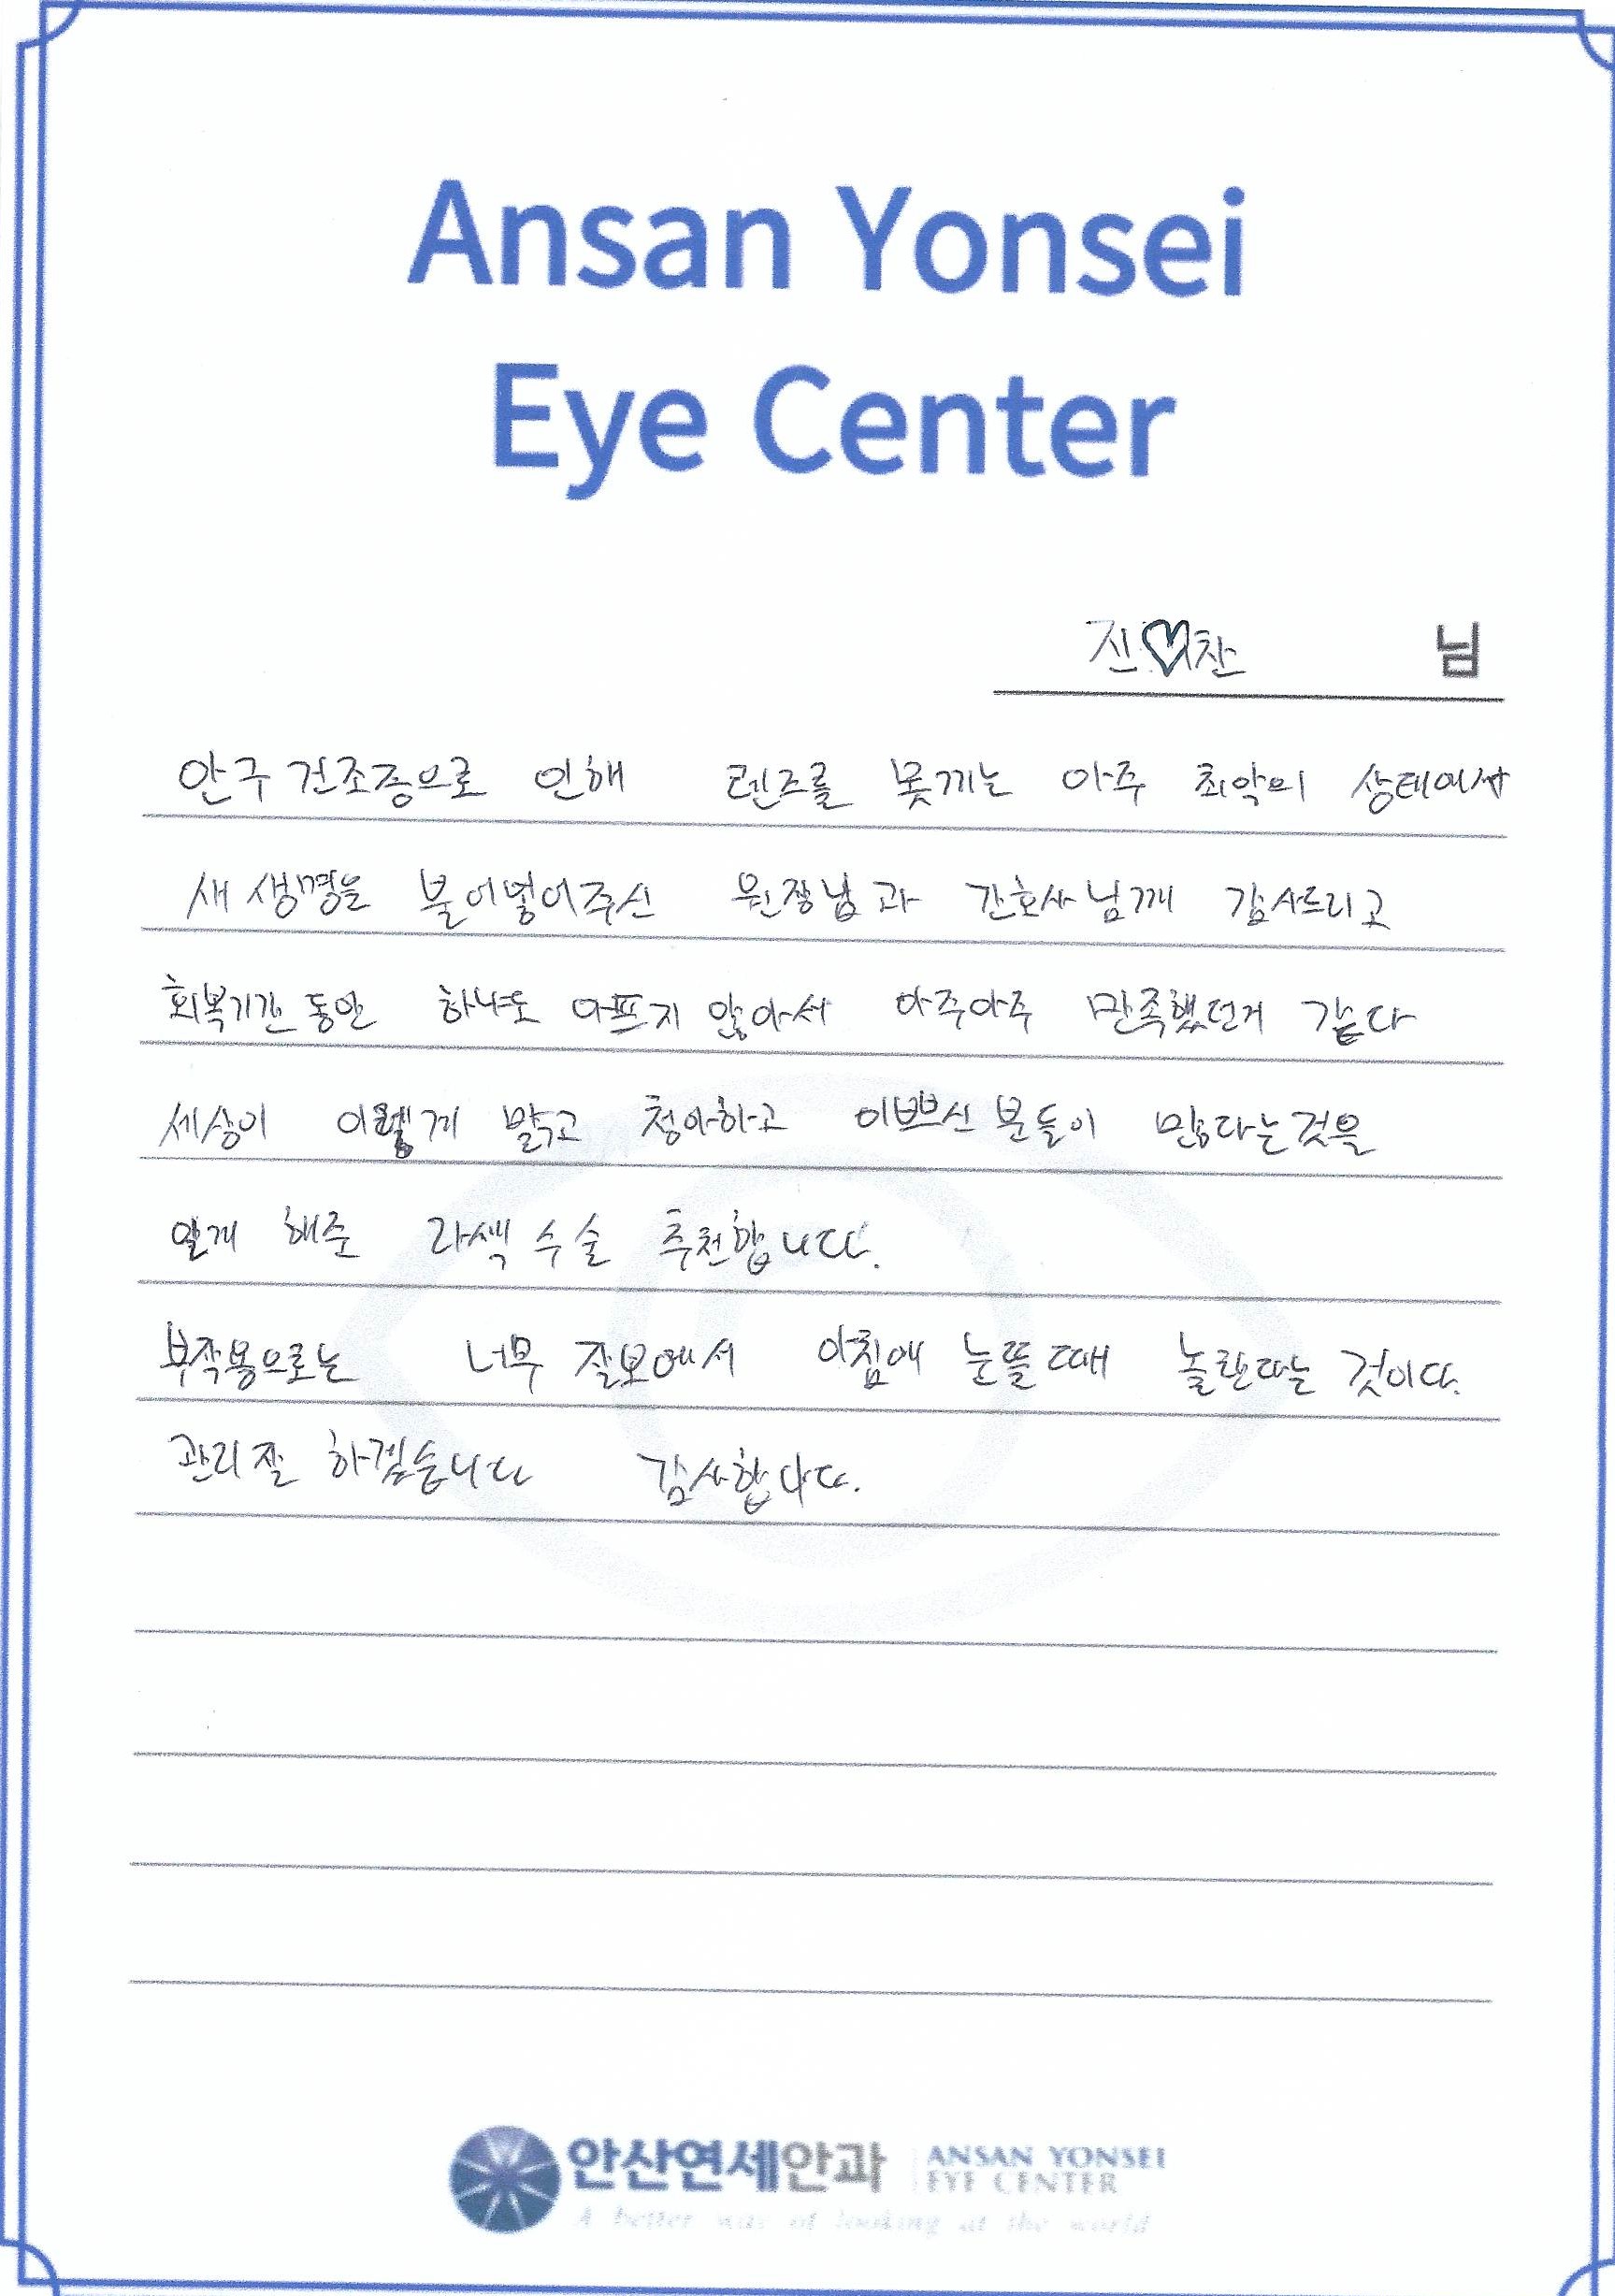 Ansan Yonsei
Eye Center
진♡찬 님
안구 건조증으로 인해 렌즈를 못끼는 아주 최악의 상태에서
새 생명을 불어넣어주신 원장님과 간호사님께 감사드리고
회복기간 동안 하나도 아프지 않아서 아주아주 만족했던거 같다
세상이 이렇게 맑고 청아하고 이쁘신 분들이 많다는것을
알게 해준 라섹 수술 추천합니다.
부작용으로는 너무 잘보여서 아침에 눈뜰때 놀란다는 것이다.
관리잘 하겠습니다 감사합니다.
안산연세안과 ANSAN YONSEI
EYE CENTER
A better way of looking at the world